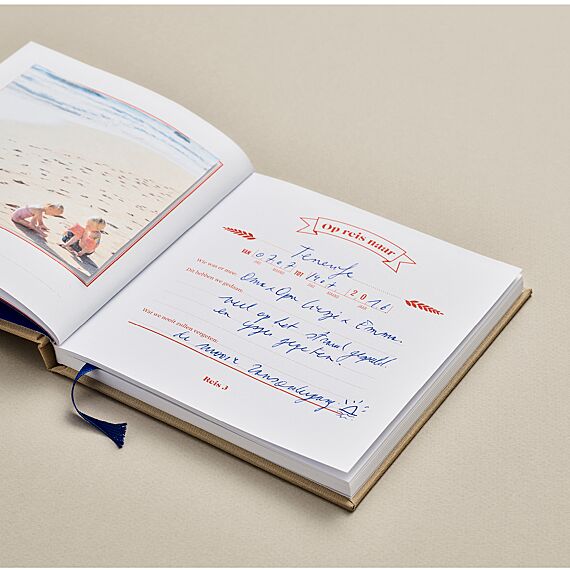 Op reis naar
Tenerife
VAN 07 07 TOT 14 07 2016
Wie was er mee:
Oma & Opa Wezji & Emma.
Dit hebben we gedaan:
veel op het strand gespeeld
en gegeten.
Wat we nooit zullen vergeten:
de mooie zonsondergang.
Reis 3